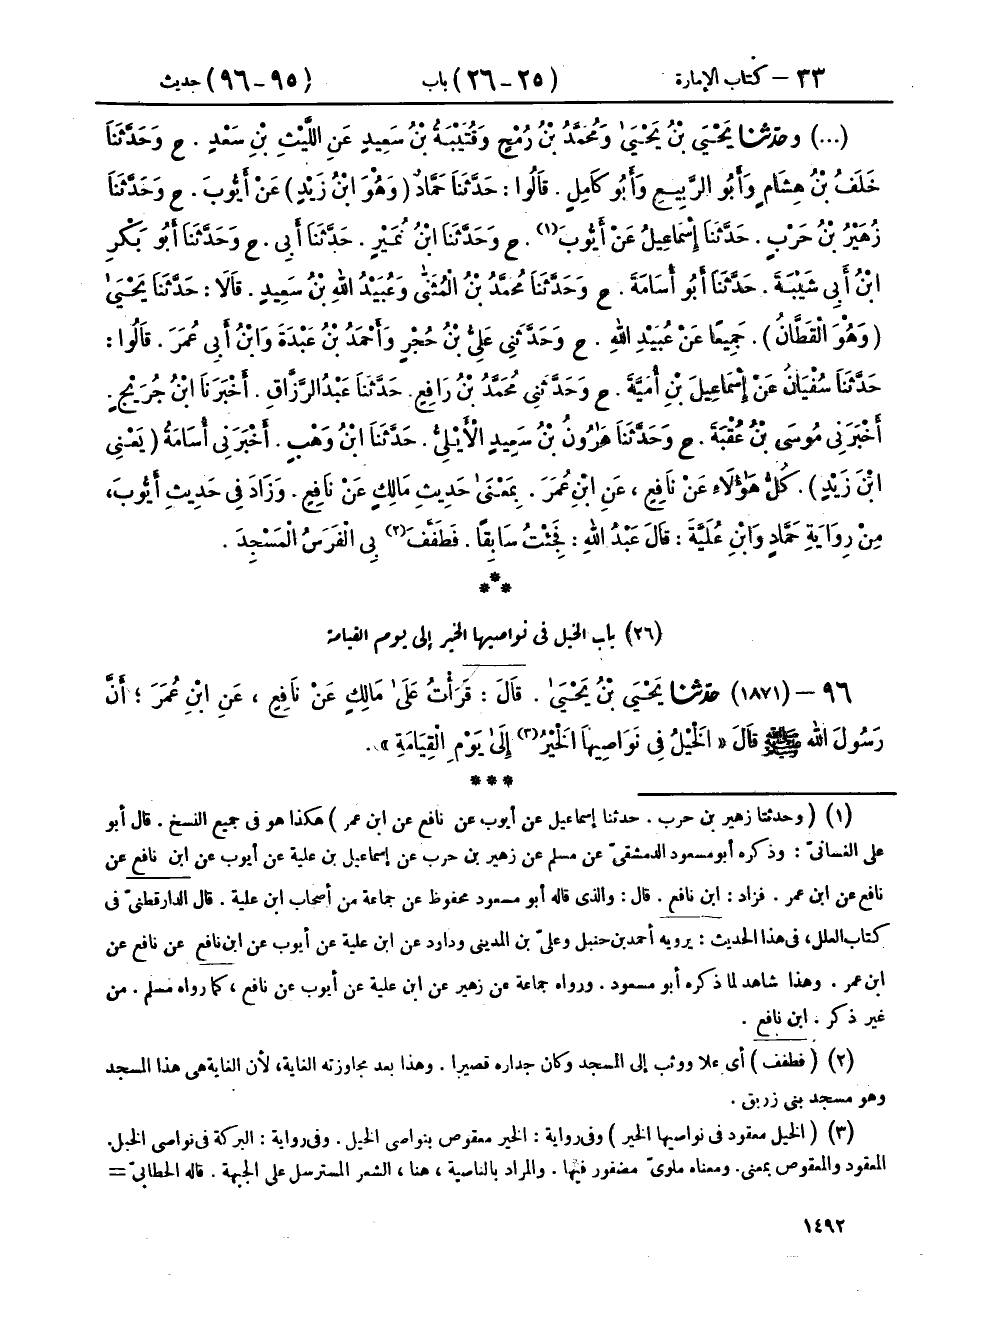 ٣٣ – كتاب الإمارة (٢٥ – ٢٦) باب (٩٥ – ٩٦) حديث
(...) وحَدَّثَنَا يَحْيَىٰ بْنُ يَحْيَىٰ وَمُحَمَّدُ بْنُ رُمْحٍ وَقُتَيْبَةُ بْنُ سَعِيدٍ عَنِ اللَّيْثِ بْنِ سَعْدٍ . ح وَحَدَّثَنَا
خَلَفُ بْنُ هِشَامٍ وَأَبُو الرَّبِيعِ وَأَبُو كَامِلٍ . قَالُوا : حَدَّثَنَا حَمَّادٌ ( وَهُوَ ابْنُ زَيْدٍ ) عَنْ أَيُّوبَ . ح وَحَدَّثَنَا
زُهَيْرُ بْنُ حَرْبٍ . حَدَّثَنَا إِسْمَاعِيلُ عَنْ أَيُّوبَ(١) . ح وَحَدَّثَنَا ابْنُ نُمَيْرٍ . حَدَّثَنَا أَبِي . ح وَحَدَّثَنَا أَبُو بَكْرِ
ابْنُ أَبِي شَيْبَةَ . حَدَّثَنَا أَبُو أُسَامَةَ . ح وَحَدَّثَنَا مُحَمَّدُ بْنُ الْمُثَنَّىٰ وَعُبَيْدُ اللهِ بْنُ سَعِيدٍ . قَالَا : حَدَّثَنَا يَحْيَىٰ
( وَهُوَ الْقَطَّانُ ) . جَمِيعًا عَنْ عُبَيْدِ اللهِ . ح وَحَدَّثَنِي عَلِيُّ بْنُ حُجْرٍ وَأَحْمَدُ بْنُ عَبْدَةَ وَابْنُ أَبِي عُمَرَ . قَالُوا :
حَدَّثَنَا سُفْيَانُ عَنْ إِسْمَاعِيلَ بْنِ أُمَيَّةَ . ح وَحَدَّثَنِي مُحَمَّدُ بْنُ رَافِعٍ . حَدَّثَنَا عَبْدُ الرَّزَّاقِ . أَخْبَرَنَا ابْنُ جُرَيْجٍ .
أَخْبَرَنِي مُوسَى بْنُ عُقْبَةَ . ح وَحَدَّثَنَا هَارُونُ بْنُ سَعِيدٍ الْأَيْلِيُّ . حَدَّثَنَا ابْنُ وَهْبٍ . أَخْبَرَنِي أُسَامَةُ ( يَعْنِي
ابْنَ زَيْدٍ ) . كُلُّ هَؤُلَاءِ عَنْ نَافِعٍ ، عَنِ ابْنِ عُمَرَ . بِمَعْنَىٰ حَدِيثِ مَالِكٍ عَنْ نَافِعٍ . وَزَادَ فِي حَدِيثِ أَيُّوبَ،
مِنْ رِوَايَةِ حَمَّادٍ وَابْنِ عُلَيَّةَ : قَالَ عَبْدُ اللهِ : فَجِئْتُ سَابِقًا . فَطَفَّفَ(٢) بِي الْفَرَسُ الْمَسْجِدَ .
***
(٢٦) باب الخيل فى نواصيها الخير إلى يوم القيامة
٩٦ – (١٨٧١) حَدَّثَنَا يَحْيَى بْنُ يَحْيَىٰ . قَالَ : قَرَأْتُ عَلَىٰ مَالِكٍ عَنْ نَافِعٍ ، عَنِ ابْنِ عُمَرَ ؛ أَنَّ
رَسُولَ اللهِ ﷺ قَالَ « الْخَيْلُ فِي نَوَاصِيهَا الْخَيْرُ(٣) إِلَىٰ يَوْمِ الْقِيَامَةِ » .
***
(١) ( وحدثنا زهير بن حرب . حدثنا إسماعيل عن أيوب عن نافع عن ابن عمر ) هكذا هو فى جميع النسخ . قال أبو
على الغسانىّ : وذكره أبو مسعود الدمشقىّ عن مسلم عن زهير بن حرب عن إسماعيل بن علية عن أيوب عن ابن نافع عن
نافع عن ابن عمر . فزاد : ابن نافع . قال : والذى قاله أبو مسعود محفوظ عن جماعة من أصحاب ابن علية . قال الدارقطنىّ فى
كتاب العلل، فى هذا الحديث : يرويه أحمد بن حنبل وعلىّ بن المدينى وداود عن ابن علية عن أيوب عن ابن نافع عن نافع عن
ابن عمر . وهذا شاهد لما ذكره أبو مسعود . ورواه جماعة عن زهير عن ابن علية عن أيوب عن نافع ، كما رواه مسلم . من
غير ذكر . ابن نافع .
(٢) ( فطفف ) أى علا ووثب إلى المسجد وكان جداره قصيرا . وهذا بعد مجاوزته الغاية، لأن الغاية هى هذا المسجد
وهو مسجد بنى زريق .
(٣) ( الخيل معقود فى نواصيها الخير ) وفى رواية : الخير معقوص بنواصى الخيل . وفى رواية : البركة فى نواصى الخيل.
المعقود والمعقوص بمعنى. ومعناه ملوىّ مضفور فيها . والمراد بالناصية ، هنا ، الشعر المسترسل على الجبهة . قاله الخطابىّ =
١٤٩٢